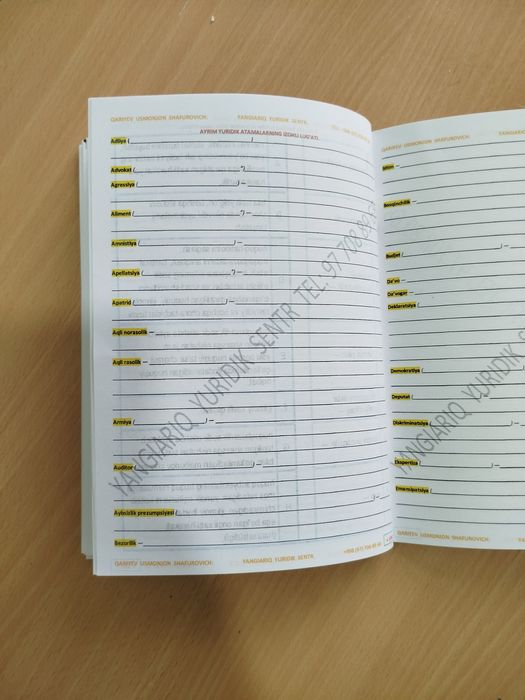 QARIYEV USMONJON SHAFUROVICH: YANGIARIQ YURIDIK SENTR.
AYRIM YURIDIK ATAMALARNING IZOHLI LUG'ATI
Adliya (
Advokat ( ") –
Agressiya ( ") –
Aliment ( ") –
Amnistiya ( ) –
Apellatsiya ( ") –
Apatrid ( ) –
Aqli norasolik –
Aqli rasolik –
Armiya ( ) –
Auditor ( ) –
Aybsizlik prezumpsiyasi ( ) –
Bezorilik –
QARIYEV USMONJON SHAFUROVICH: YANGIARIQ YURIDIK SENTR. +998 (97) 708 89
YANGIARIQ YURIDIK SENTR TEL: 97 708 89
QARIYEV USMONJON SHAFUROVICH: YANGIARIQ
Bosqinchilik –
Budjet ( ) –
Da'vo –
Da'vogar –
Deklaratsiya (
Demokratiya (
Deputat (
Diskriminatsiya (
Ekspertiza (
Emansipatsiya (
QARIYEV USMONJON SHAFUROVICH: YANGIARIQ
YANGIARIQ YURIDIK SEN